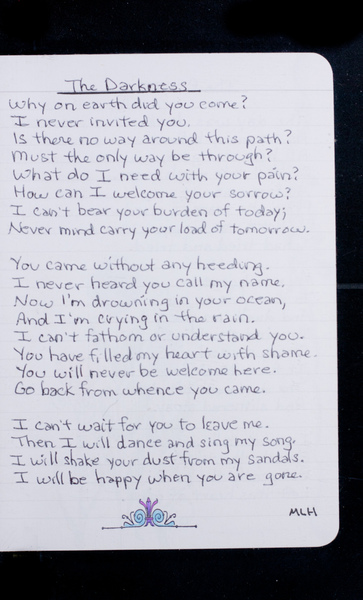 The Darkness
Why on earth did you come?
I never invited you.
Is there no way around this path?
Must the only way be through?
What do I need with your pain?
How can I welcome your sorrow?
I can't bear your burden of today;
Never mind carry your load of tomorrow.
You came without any heeding.
I never heard you call my name.
Now I'm drowning in your ocean,
And I'm crying in the rain.
I can't fathom or understand you.
You have filled my heart with shame.
You will never be welcome here.
Go back from whence you came.
I can't wait for you to leave me.
Then I will dance and sing my song.
I will shake your dust from my sandals.
I will be happy when you are gone.
MLH